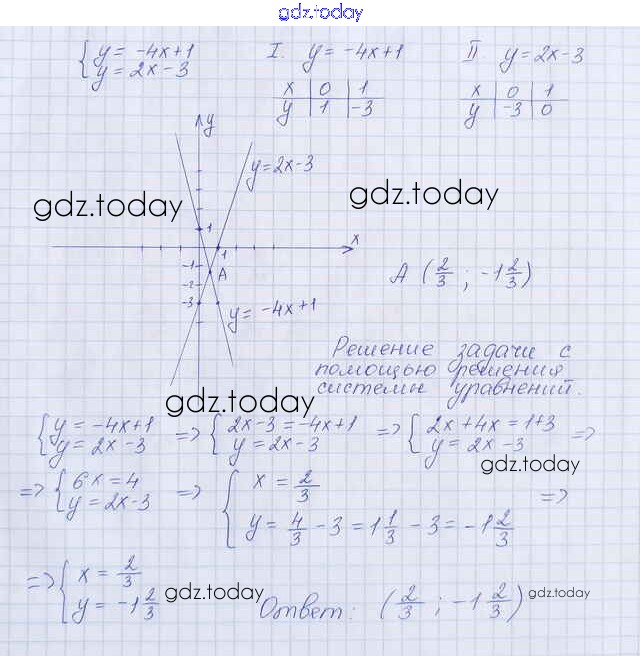 gdz.today
{ y = -4x+1
{ y = 2x-3
I. y = -4x+1
x | 0 | 1
y | 1 | -3
II y = 2x-3
x | 0 | 1
y | -3 | 0
y
y=2x-3
gdz.today
gdz.today
1
x
1
-1
A
-2
-3
y = -4x+1
A (2/3 ; -1 2/3)
Решение задачи с
помощью решения
системы уравнений.
gdz.today
{ y = -4x+1 => { 2x-3 = -4x+1 => { 2x+4x = 1+3 =>
{ y = 2x-3 { y = 2x-3 { y = 2x-3
gdz.today
=> { 6x = 4 => { x = 2/3 =>
{ y = 2x-3 { y = 4/3 - 3 = 1 1/3 - 3 = -1 2/3
=> { x = 2/3
{ y = -1 2/3
gdz.today
Ответ: (2/3 ; -1 2/3)
gdz.today